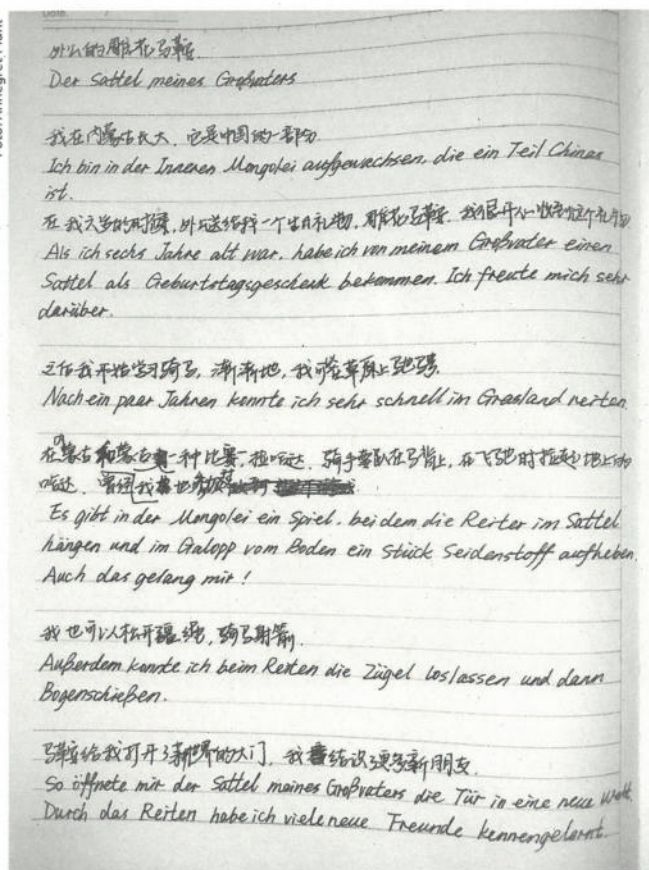 Date.
外公的雕花马鞍.
Der Sattel meines Großvaters
我在内蒙古长大, 它是中国的一部分
Ich bin in der Inneren Mongolei aufgewachsen, die ein Teil Chinas
ist.
在我六岁的时候, 外公送给我一个生日礼物, 雕花马鞍. 我很开心收到这个礼物
Als ich sechs Jahre alt war, habe ich von meinem Großvater einen
Sattel als Geburtstagsgeschenk bekommen. Ich freute mich sehr
darüber.
之后我开始学习骑马, 渐渐地, 我可在草原上驰骋.
Nach ein paar Jahren konnte ich sehr schnell im Grasland reiten.
在内蒙古和蒙古有一种比赛, 捡哈达. 骑手要卧在马背上, 在飞驰时捡起地上的
哈达. 我也
Es gibt in der Mongolei ein Spiel, bei dem die Reiter im Sattel
hängen und im Galopp vom Boden ein Stück Seidenstoff aufheben.
Auch das gelang mir!
我也可以松开缰绳, 骑马射箭.
Außerdem konnte ich beim Reiten die Zügel loslassen und dann
Bogenschießen.
马鞍给我打开了新世界的大门, 我结识了更多新朋友.
So öffnete mir der Sattel meines Großvaters die Tür in eine neue Welt.
Durch das Reiten habe ich viele neue Freunde kennengelernt.